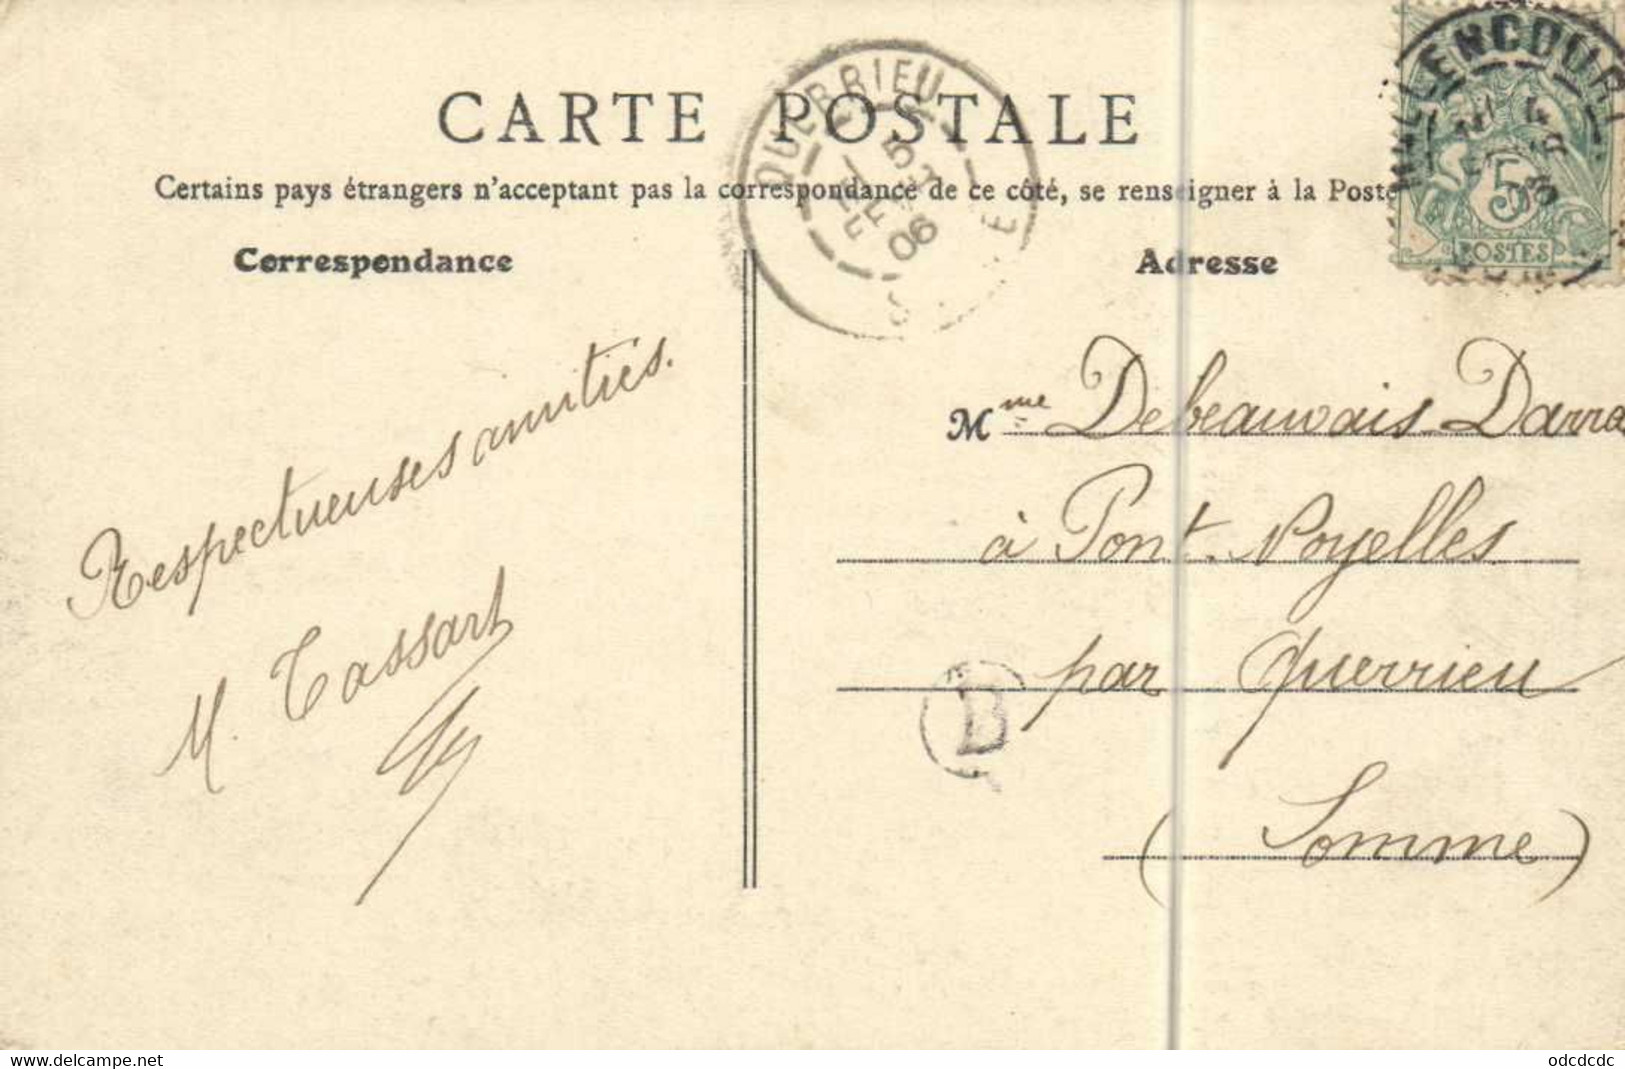 CARTE POSTALE
Certains pays étrangers n'acceptant pas la correspondance de ce côté, se renseigner à la Poste
Correspondance
Adresse
QUERRIEU
5
06
5
POSTES
Respectueuses amitiés.
M. Tassart
Mme Debeauvais Darra
à Pont-Noyelles
par Querrieu
(Somme)
B
www.delcampe.net
odcdcdc